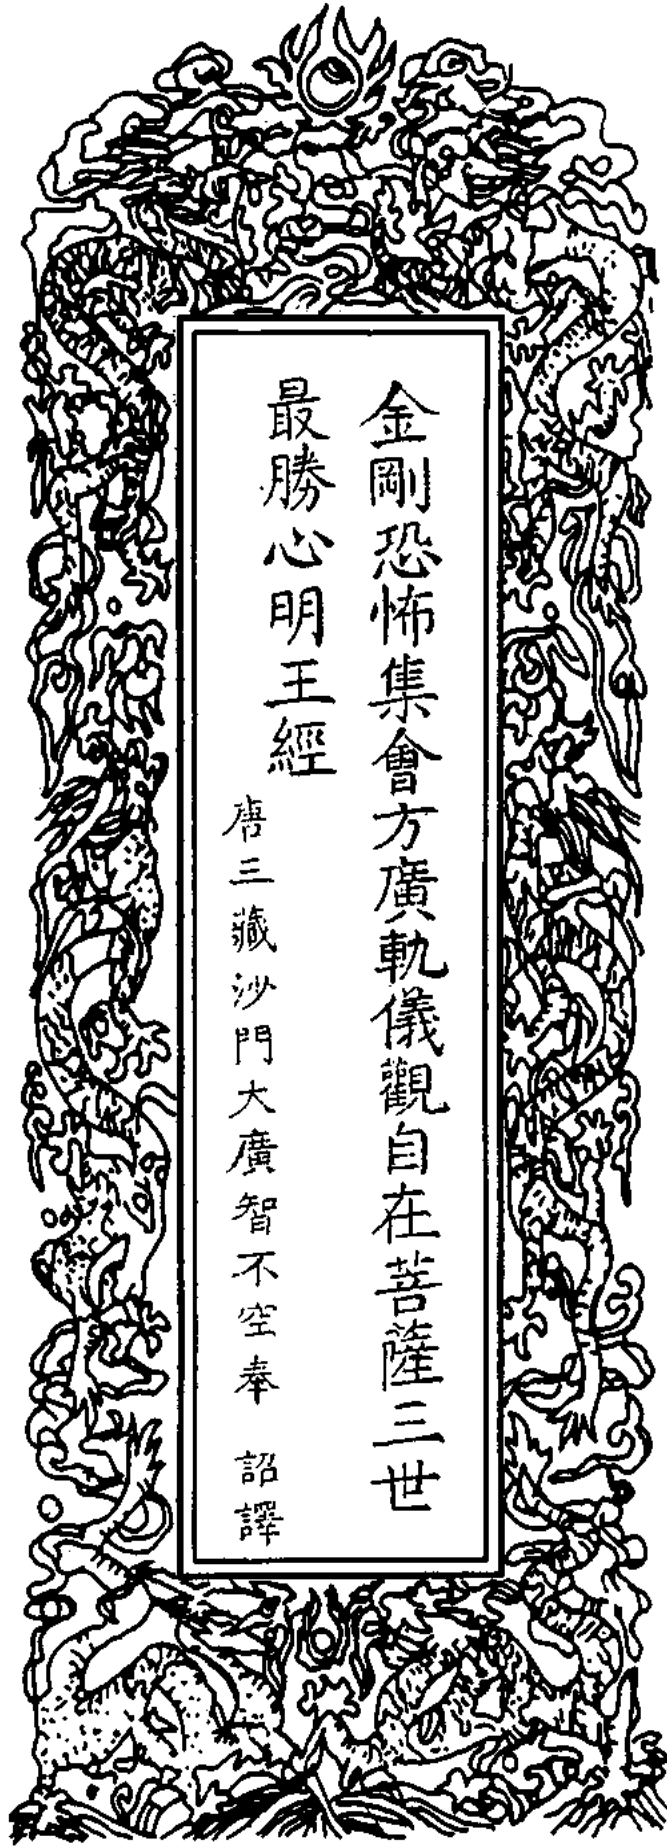 金剛恐怖集會方廣軌儀觀自在菩薩三世
最勝心明王經
唐三藏沙門大廣智不空奉 詔譯